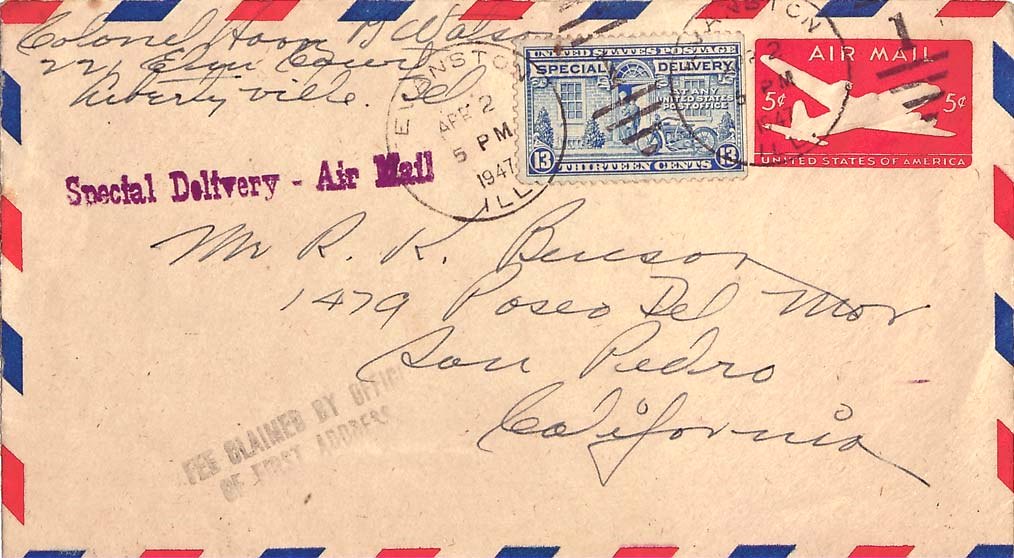 Colonel Hoon G Watson
221 Elm Court
Libertyville. Ill
EVANSTON
APR 2
5 PM
1947
ILL.
UNITED STATES POSTAGE
SPECIAL DELIVERY
AT ANY
UNITED STATES
POST OFFICE
13 THIRTEEN CENTS 13
ANSTON
2
PM
1947
ILL
1
AIR MAIL
5¢ 5¢
UNITED STATES OF AMERICA
Special Delivery - Air Mail
Mr R. K. Benson
1479 Paseo Del Mar
San Pedro
California
FEE CLAIMED BY OFFICE
OF FIRST ADDRESS